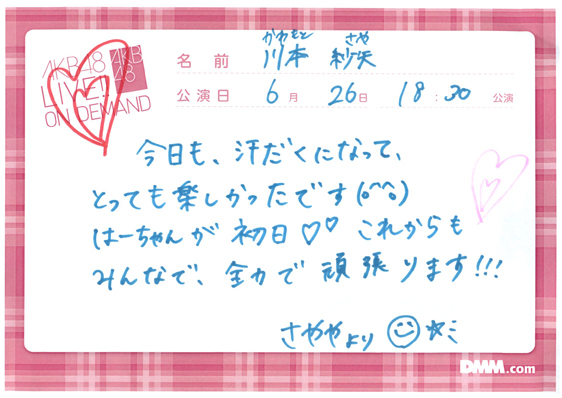 AKB48
LIVE!!
ON DEMAND
AKB
48
名前 川本 紗矢
かわもと さや
公演日 6月 26日 18:30 公演
今日も、汗だくになって、
とっても楽しかったです(o^^o)
はーちゃんが初日♡♡これからも
みんなで、全力で頑張ります!!!
さややより ☺☆ミ
DMM.com